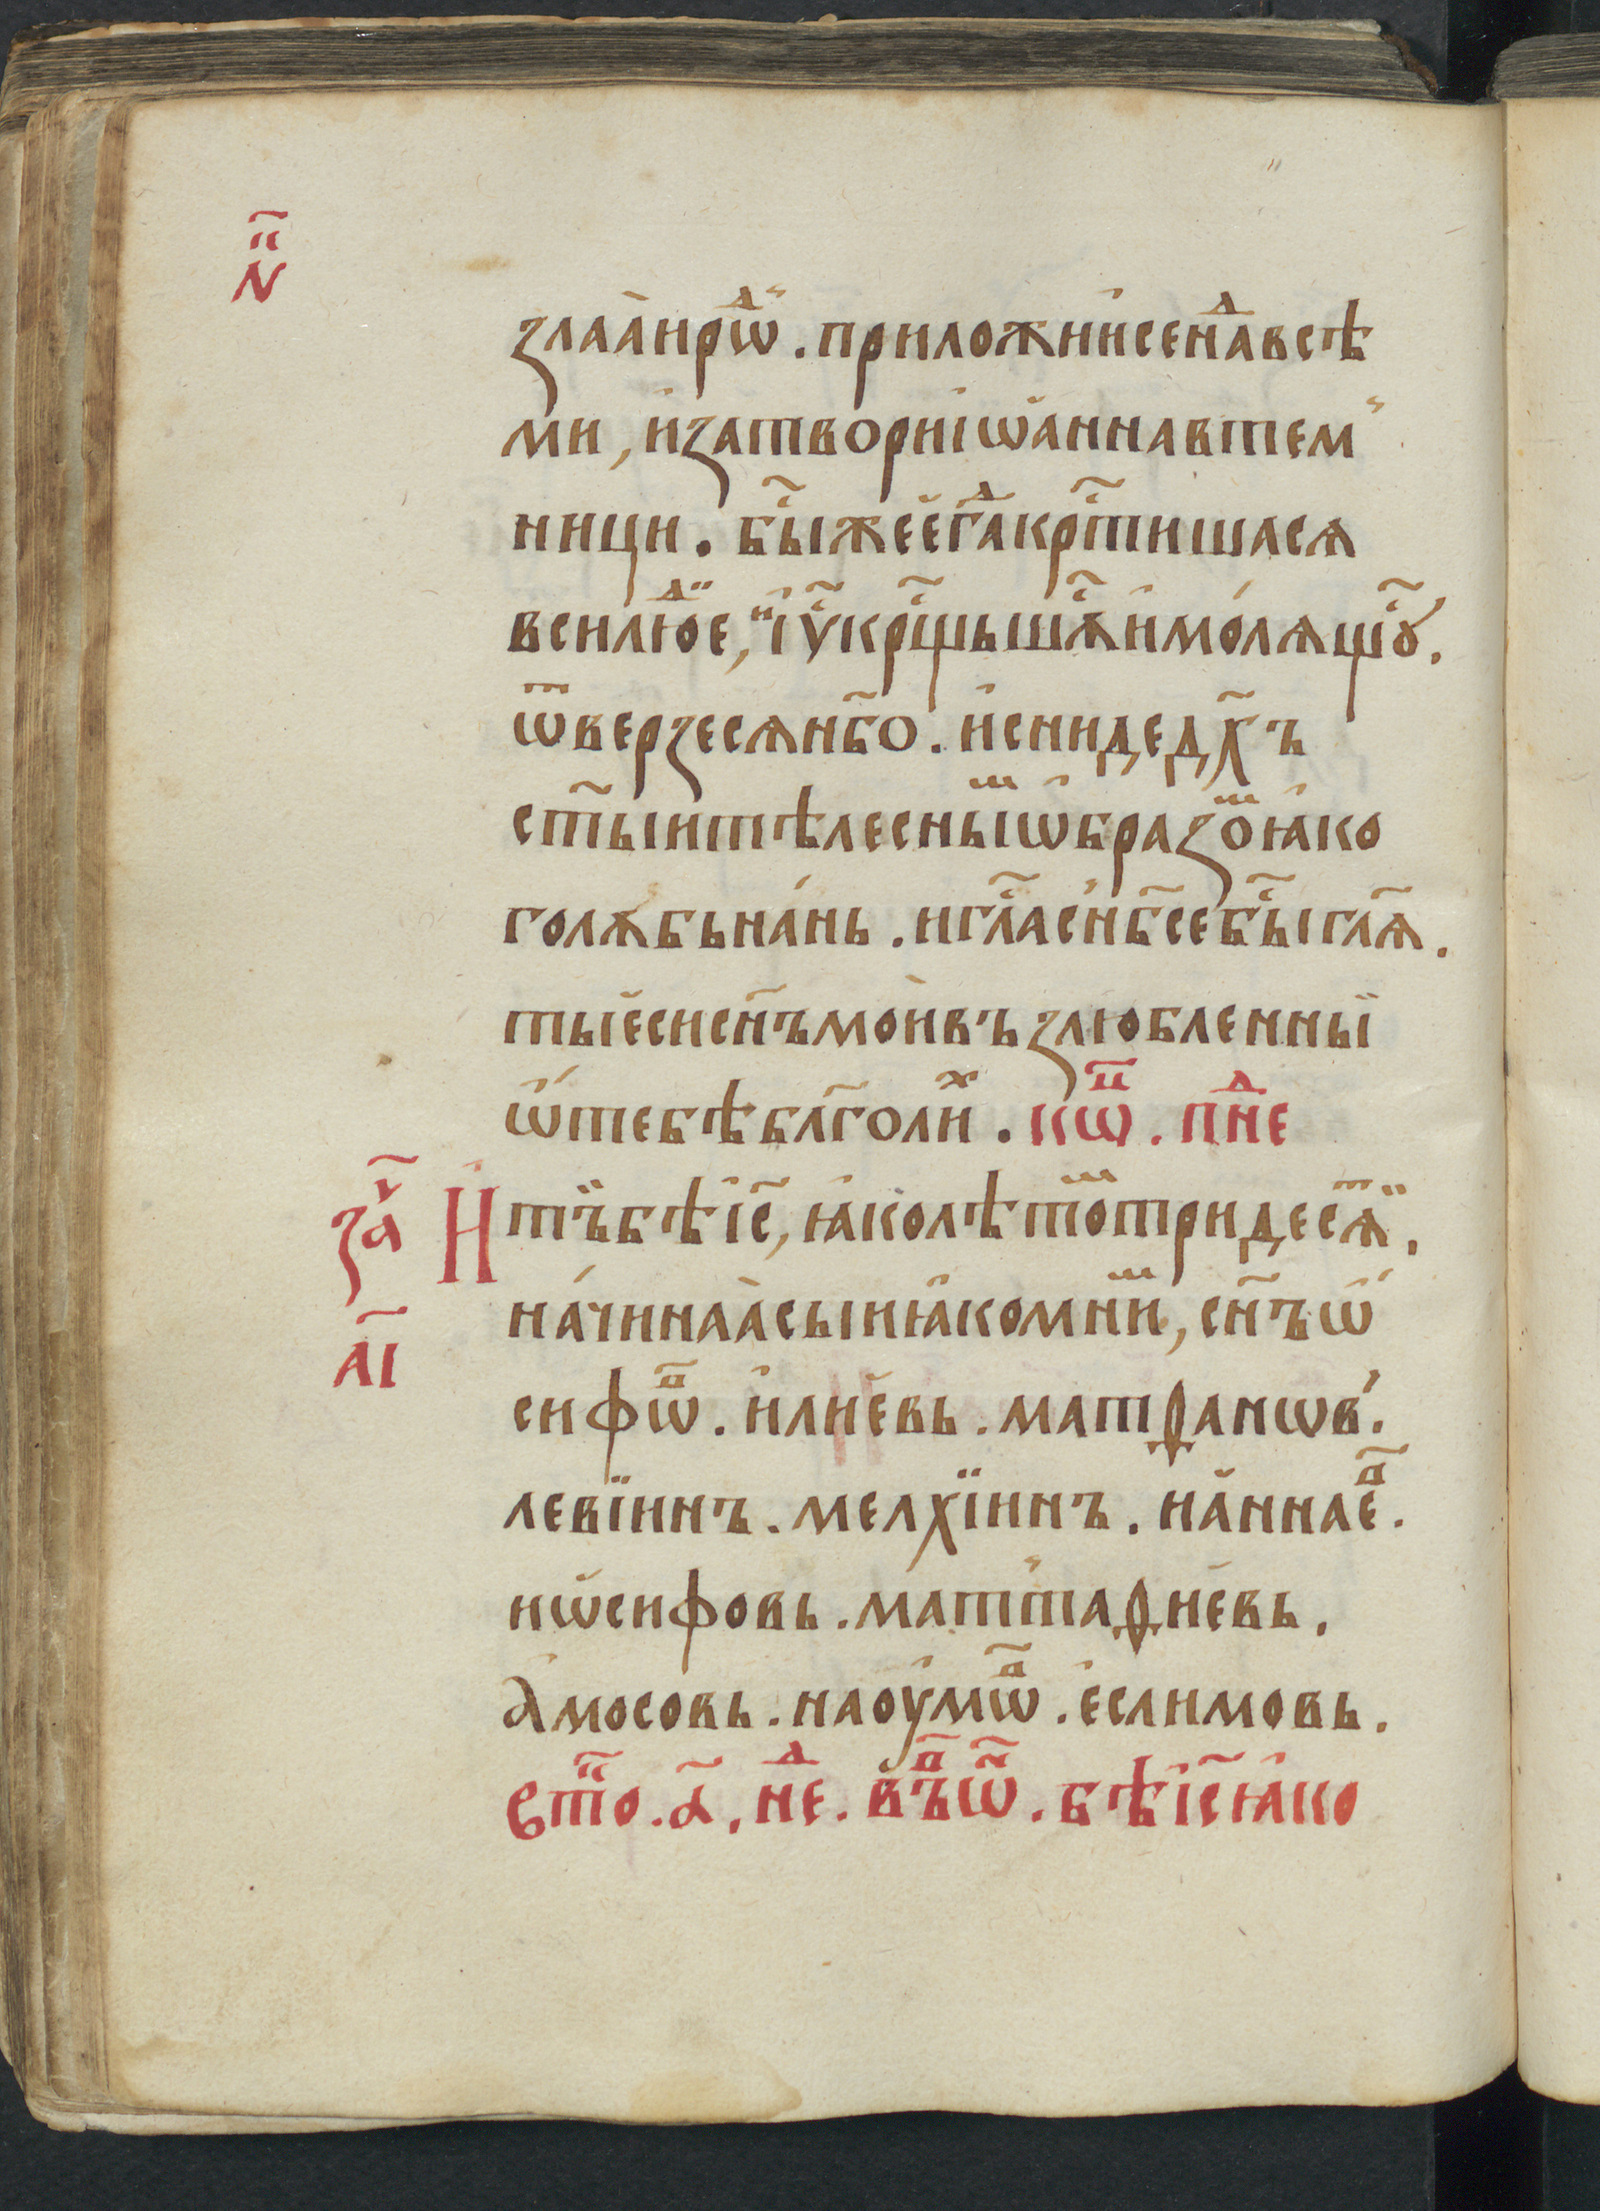 н҃п
злаѧ̀ирѡⷣ. приложиѝсенⷣавсѣ
ми, и҆затвориі҆ѡа҆ннавтем
ници. бы҇жеегⷣакр҇тишасѧ
всилю́ⷣе, и҆і҆у҇кр҇щьшꙗ҇и҆мо́лѧщ҇ꙋ.
ѿверзесѧнб҃о. и҆снидедх҃ъ
ст҃ыитѣлесныⷨѡ҆бразоⷨꙗ҆ко
голѫбьна́нь. игл҇асн҃бсебы҇гл҃ѧ.
тыѐсисн҃ъмоѝвъзлюбленны
ѡ҆тебѣбл҃голиⷯ. кѡⷰ. пнⷣе
за҇ч
а҃і
И҆тъ̀бѣі҆с҃, ꙗ҆колѣтоⷨтридесѧⷮ.
на́чинаѧ̀сыиꙗ҆комниⷨ, сн҃ъѡ҆
сифѡⷡ. и҆лие́вь. матѳанѡв.
левїинъ. мелхїинъ. иа҆ннаеⷡ.
иѡ҆сифовь. маттаѳие́вь.
а҆мосовь. наоу҆мѡⷡ. е҆слимовь.
Єⷢ҇то. а҃. нⷣе. въⷡѡⷩ. бѣі҆с҃ꙗ҆ко